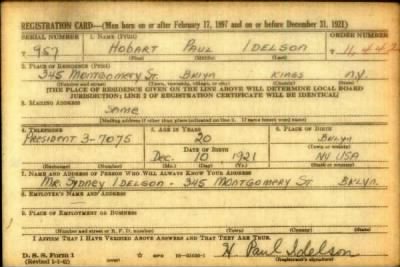 REGISTRATION CARD—(Men born on or after February 17, 1897 and on or before December 31, 1921)
SERIAL NUMBER 1. NAME (Print) ORDER NUMBER
T 957 HOBART PAUL IDELSON T 11,442
(First) (Middle) (Last)
2. PLACE OF RESIDENCE (Print)
345 MONTGOMERY ST. BKLYN KINGS N.Y.
(Number and street) (Town, township, village, or city) (County) (State)
[THE PLACE OF RESIDENCE GIVEN ON THE LINE ABOVE WILL DETERMINE LOCAL BOARD
JURISDICTION; LINE 2 OF REGISTRATION CERTIFICATE WILL BE IDENTICAL]
3. MAILING ADDRESS
SAME
[Mailing address if other than place indicated on line 2. If same insert word same]
4. TELEPHONE 5. AGE IN YEARS 6. PLACE OF BIRTH
PRESIDENT 3-7075 20 BKLYN
DATE OF BIRTH (Town or county)
DEC. 10 1921 NY USA
(Exchange) (Number) (Mo.) (Day) (Yr.) (State or country)
7. NAME AND ADDRESS OF PERSON WHO WILL ALWAYS KNOW YOUR ADDRESS
MR. SYDNEY IDELSON - 345 MONTGOMERY ST BKLYN.
8. EMPLOYER'S NAME AND ADDRESS
9. PLACE OF EMPLOYMENT OR BUSINESS
(Number and street or R. F. D. number) (Town) (County) (State)
I AFFIRM THAT I HAVE VERIFIED ABOVE ANSWERS AND THAT THEY ARE TRUE.
H. Paul Idelson
D. S. S. Form 1
(Revised 1-1-42) (over) (Registrant's signature)